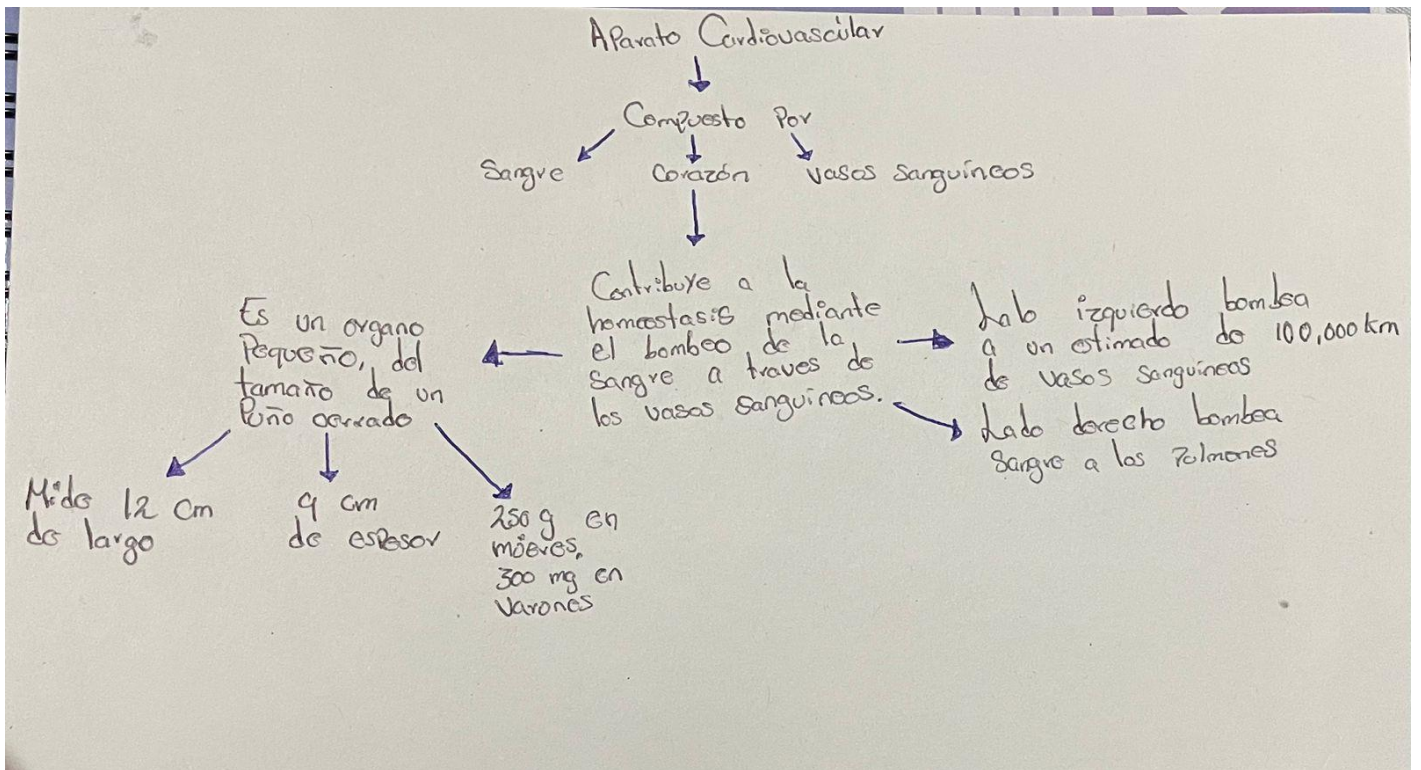 Aparato Cardiovascular
Compuesto Por
Sangre
Corazón
Vasos Sanguíneos
Contribuye a la
homeostasis mediante
el bombeo de la
Sangre a traves de
los vasos sanguineos.
Es un organo
Pequeño, del
tamaño de un
Puño cerrado
Mide 12 cm
de largo
9 cm
de espesor
250 g en
300 mg en
Varones
Lado izquierdo bombea
a un estimado de 100,000 km
de Vasos Sanguíneos
Lado derecho bombea
Sangre a los Pulmones